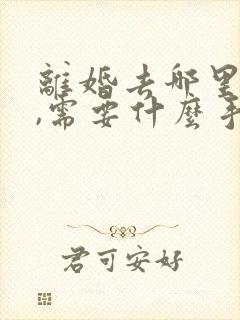 離婚去哪里
,需要什麼手
君可安好